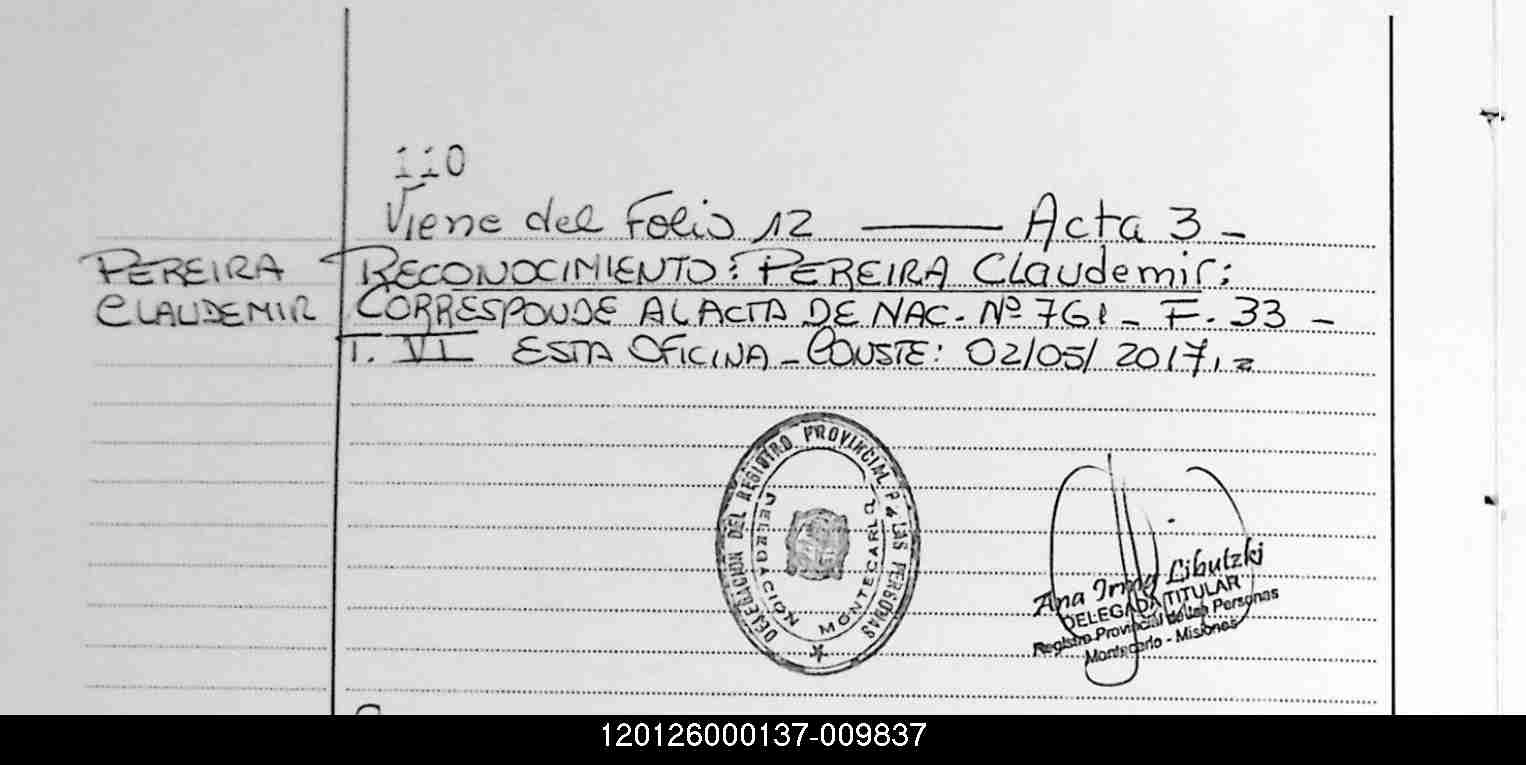 110
Viene del Folio 12 —— Acta 3 -
PEREIRA
CLAUDEMIR
RECONOCIMIENTO: PEREIRA Claudemir:
CORRESPONDE AL ACTA DE NAC. Nº 761 - F. 33 -
T. VI ESTA OFICINA - CONSTE: 02/05/2017
DELEGACION DEL REGISTRO PROVINCIAL P. LAS PERSONAS
DELEGACION MONTECARLO
Ana Irmg Libutzki
DELEGADA TITULAR
Registro Provincial de las Personas
Montecarlo - Misiones
120126000137-009837